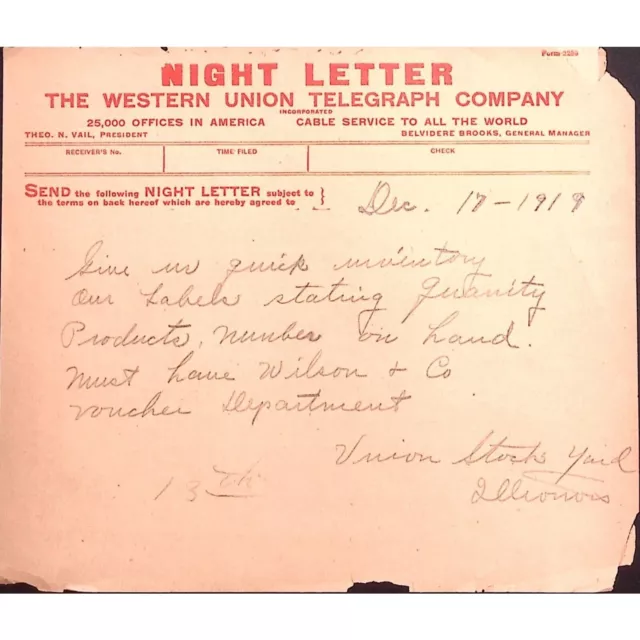 Form 2289
NIGHT LETTER
THE WESTERN UNION TELEGRAPH COMPANY
INCORPORATED
25,000 OFFICES IN AMERICA CABLE SERVICE TO ALL THE WORLD
THEO. N. VAIL, PRESIDENT BELVIDERE BROOKS, GENERAL MANAGER
RECEIVER'S No. TIME FILED CHECK
SEND the following NIGHT LETTER subject to
the terms on back hereof which are hereby agreed to }
Dec. 17-1919
Give us quick inventory
Our Labels stating Quanity
Products, number on hand.
Must have Wilson & Co
voucher Department
Union Stock Yard
Illionois
13th